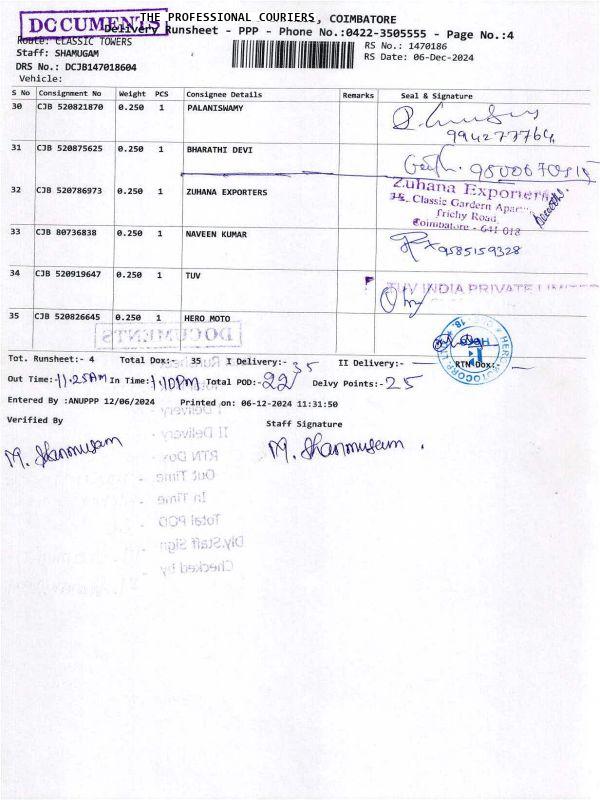 DOCUMENTS
THE PROFESSIONAL COURIERS, COIMBATORE
Delivery Runsheet - PPP - Phone No.:0422-3505555 - Page No.:4
Route: CLASSIC TOWERS
RS No.: 1470186
Staff: SHAMUGAM
RS Date: 06-Dec-2024
DRS No.: DCJB147018604
Vehicle:
S No Consignment No Weight PCS Consignee Details Remarks Seal & Signature
30 CJB 520821870 0.250 1 PALANISWAMY
994277764
31 CJB 520875625 0.250 1 BHARATHI DEVI
32 CJB 520786973 0.250 1 ZUHANA EXPORTERS
Zuhana Exporters
Classic Gardern
Trichy Road,
Coimbatore - 641 018
33 CJB 80736838 0.250 1 NAVEEN KUMAR
9585159328
34 CJB 520919647 0.250 1 TUV
TUV INDIA PRIVATE LIMITED
35 CJB 520826645 0.250 1 HERO MOTO
DOCUMENTS
Tot. Runsheet:- 4 Total Dox:- 35 I Delivery:- 35 II Delivery:- RTN Dox:-
Out Time:- 11.25AM In Time:- 1.10PM Total POD:- 22 Delvy Points:- 25
Entered By :ANUPPP 12/06/2024 Printed on: 06-12-2024 11:31:50
Verified By
Staff Signature
M. Shanmugam
M. Shanmugam .
II Delivery -
RTN Dox -
Out Time -
In Time -
Total POD -
Dly.Staff Sign -
Checked by -